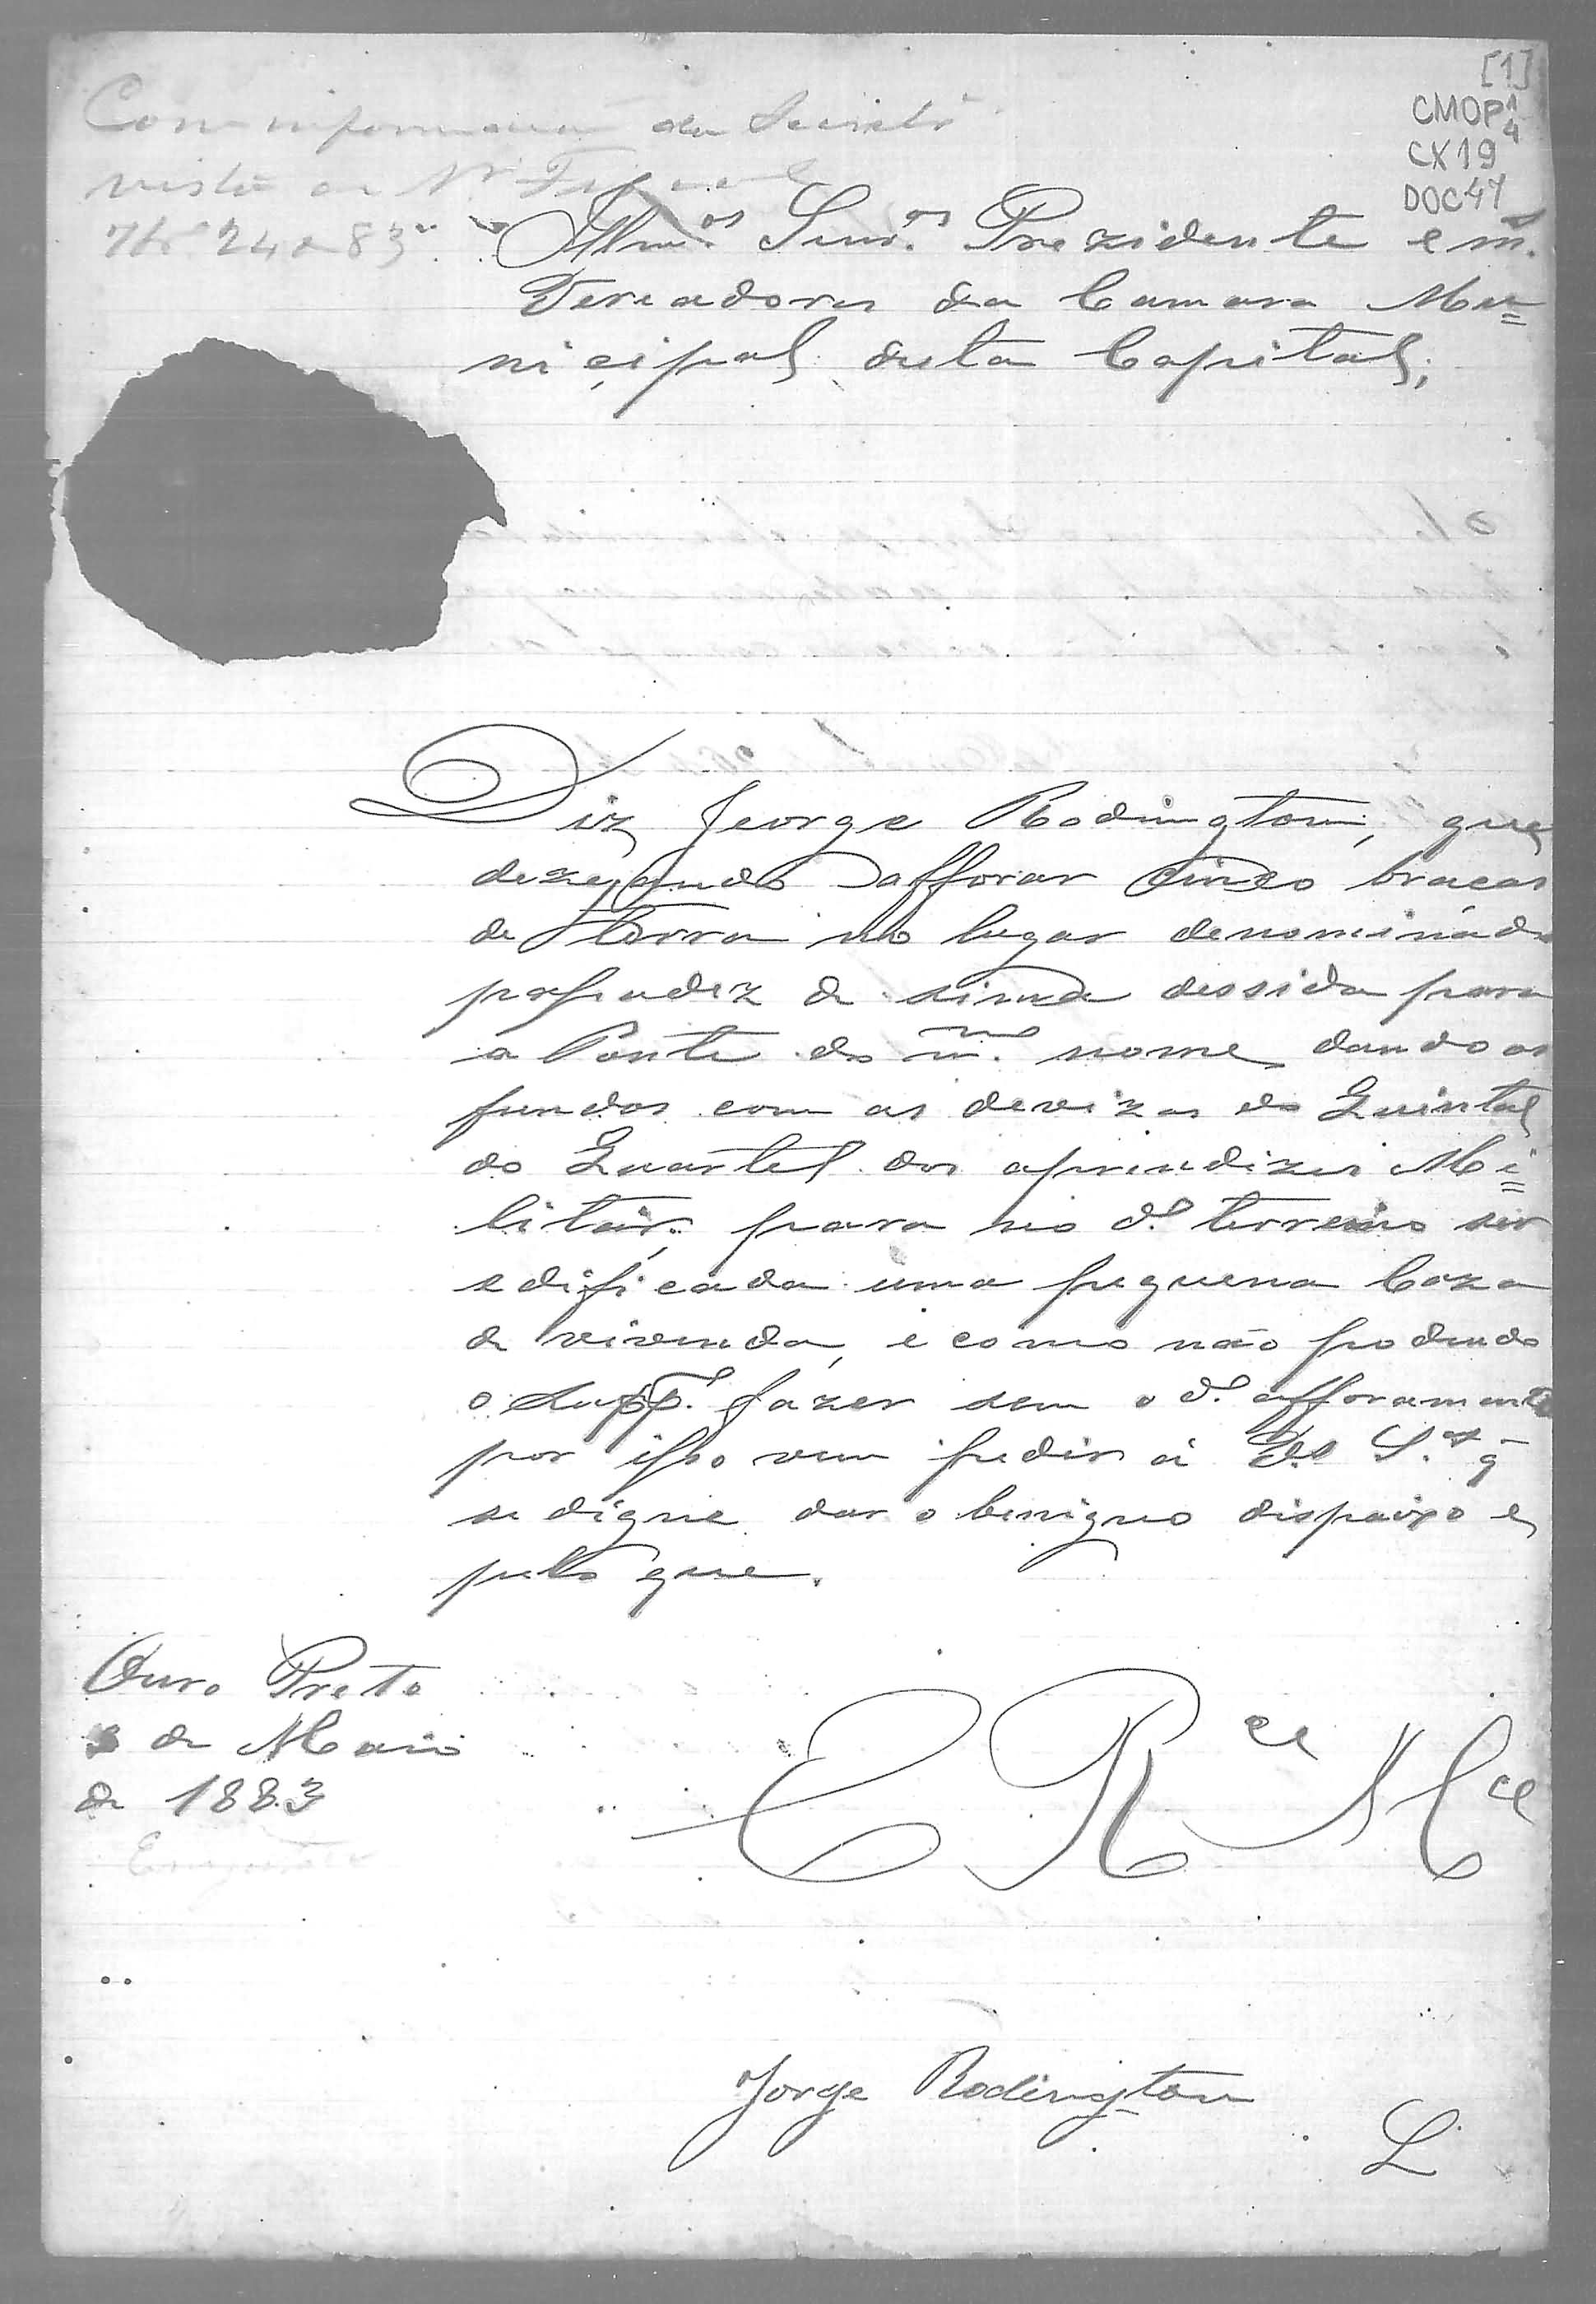 [1]
CMOP 1/4
CX19
DOC 41
Com informacaõ da
vista ao Sr Fiscal
24 83
Illmos Snrs Prezidente e m.
Vereadores da Camara Mu=
nicipal desta Capital;
Diz Jeorge Rodington, que
dezejando afforar cinco braças
de terra no lugar denominado
de sima dessida para
a Ponte do m.mo nome dando os
fundos com as devizas do Quintal
do Quartel dos aprendizes Mi=
litar, para no d.o terreno ser
edificada uma pequena Caza
de vivenda, e como não podendo
o Supp.e fazer sem o d.o afforamento
por isso vem pedir á S.as q̃
se digne dar o benigno dispaixo e
pelo que.
E R.ce M.ce
Ouro Preto
3 de Maio
de 1883
Jorge Rodington
L